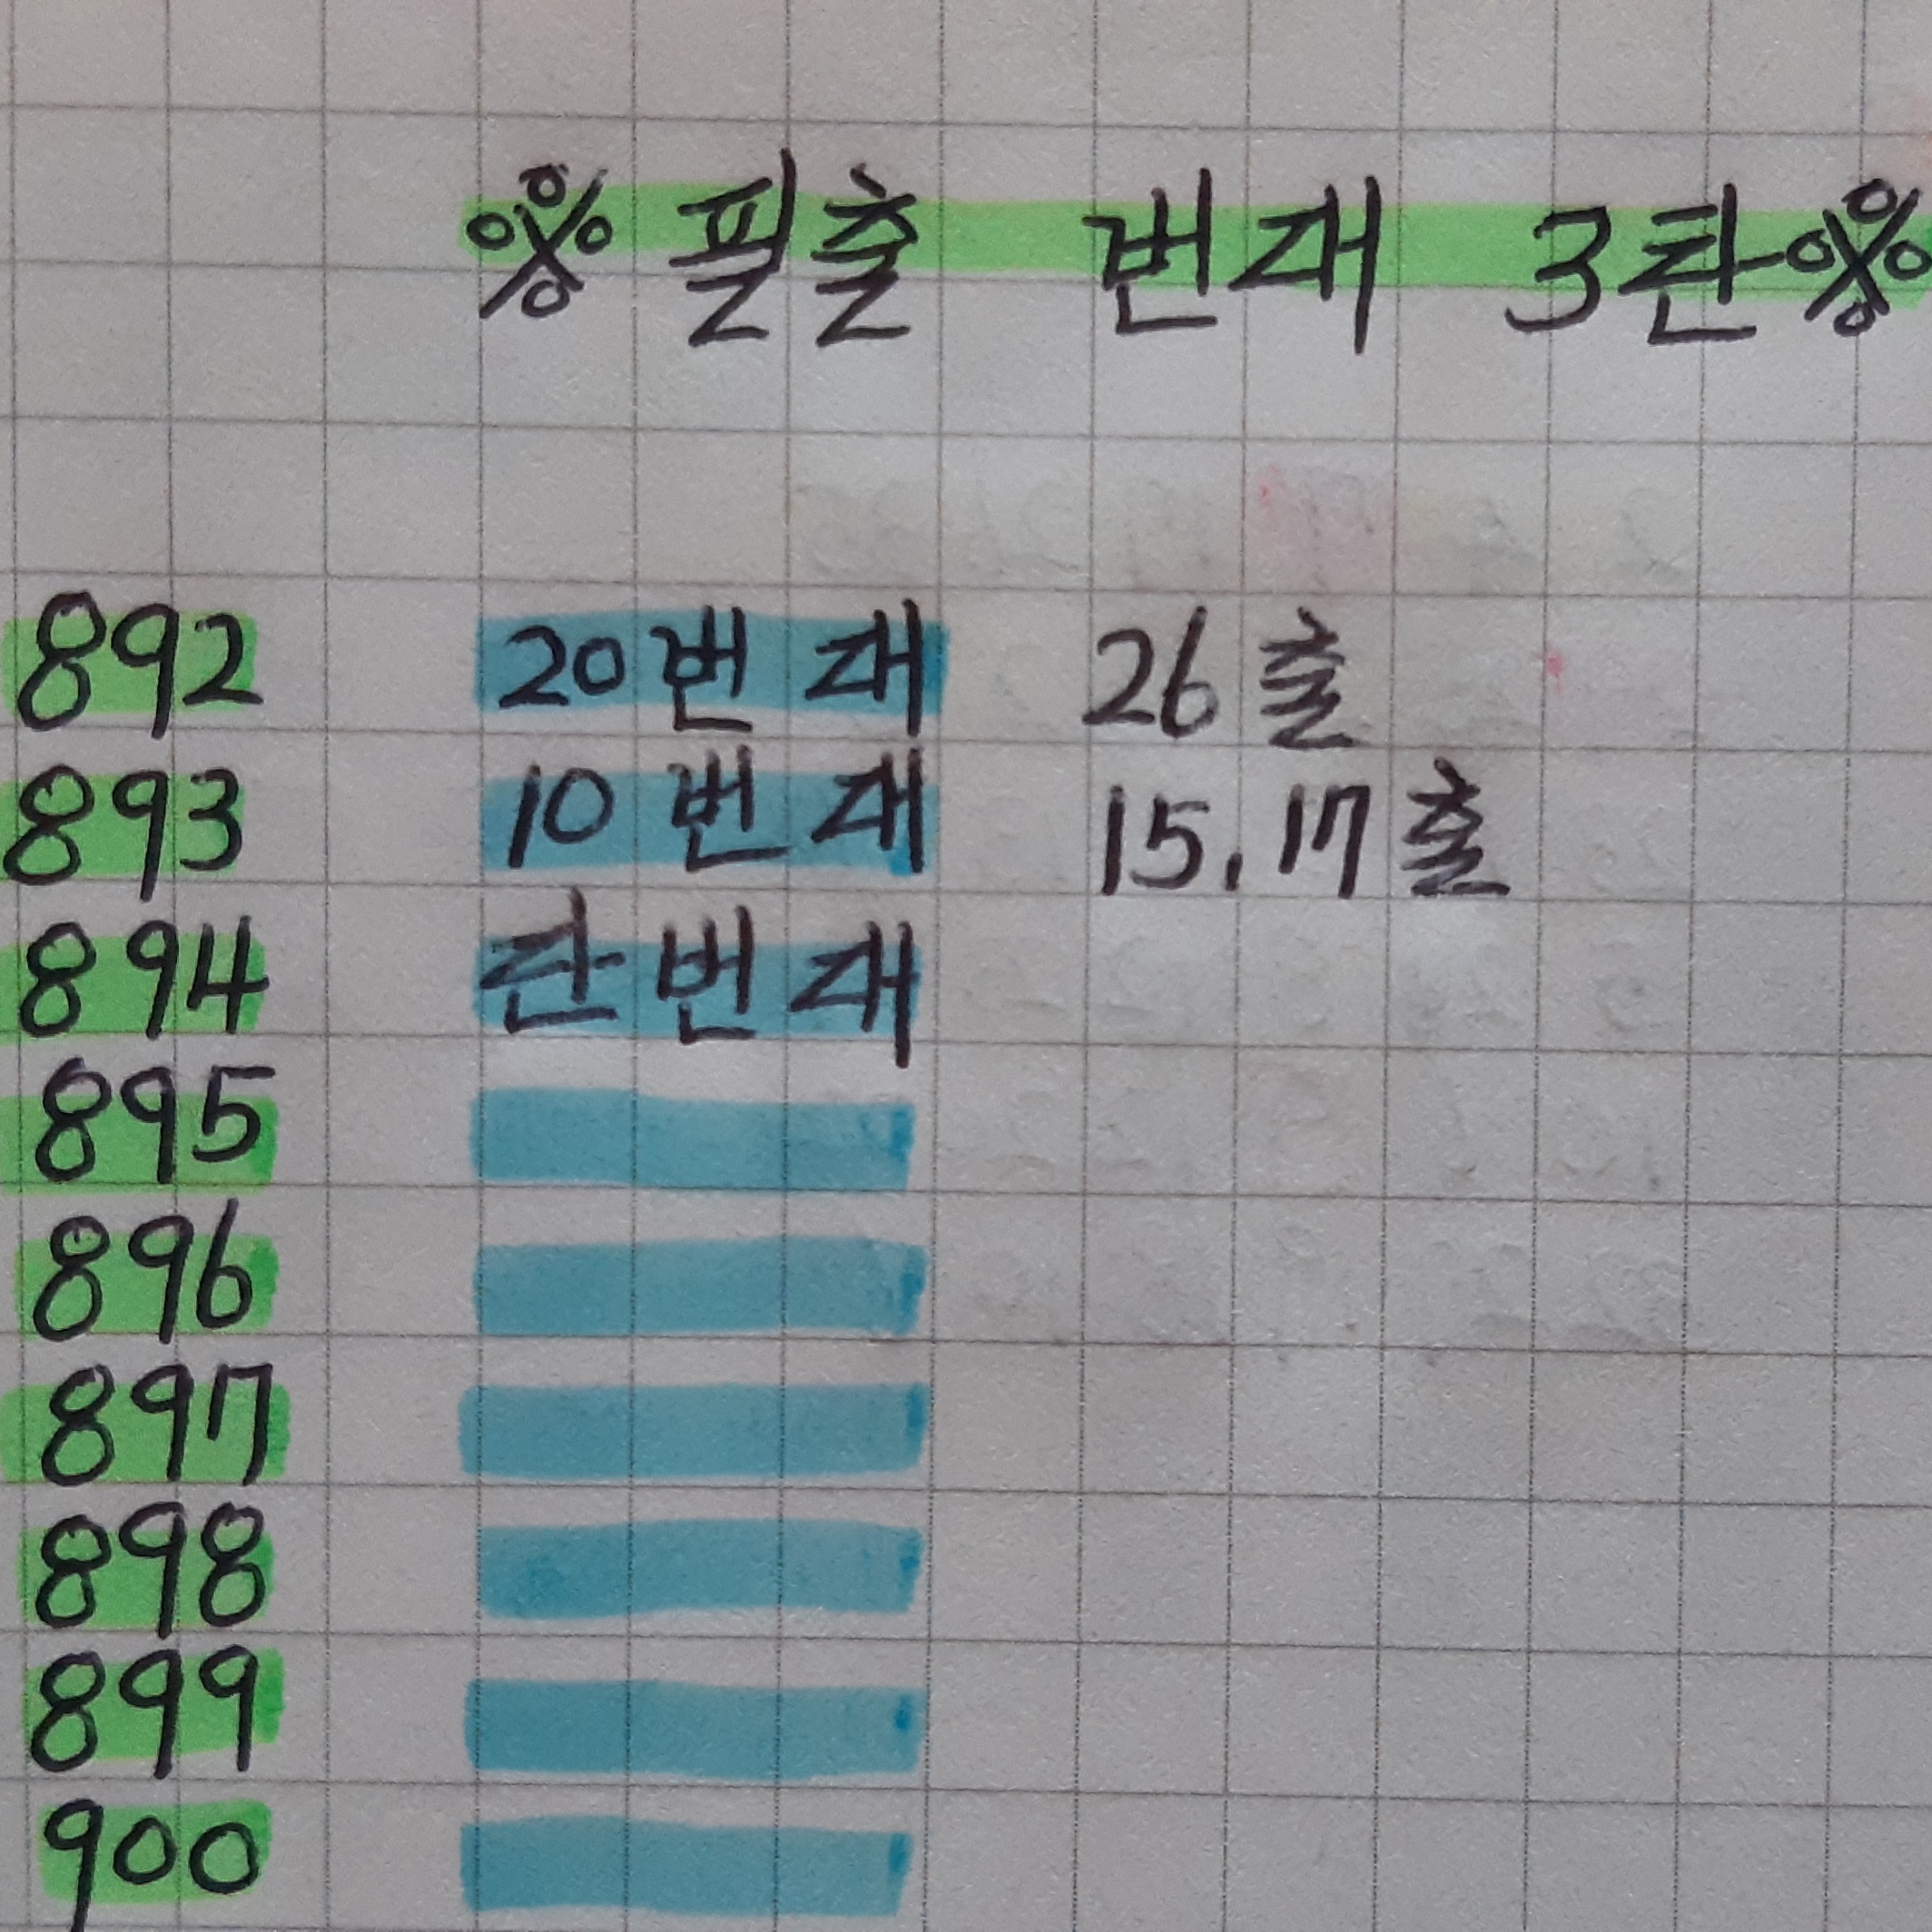 ※ 필출 번대 3탄 ※
892 20번대 26출
893 10번대 15. 17출
894 단번대
895
896
897
898
899
900